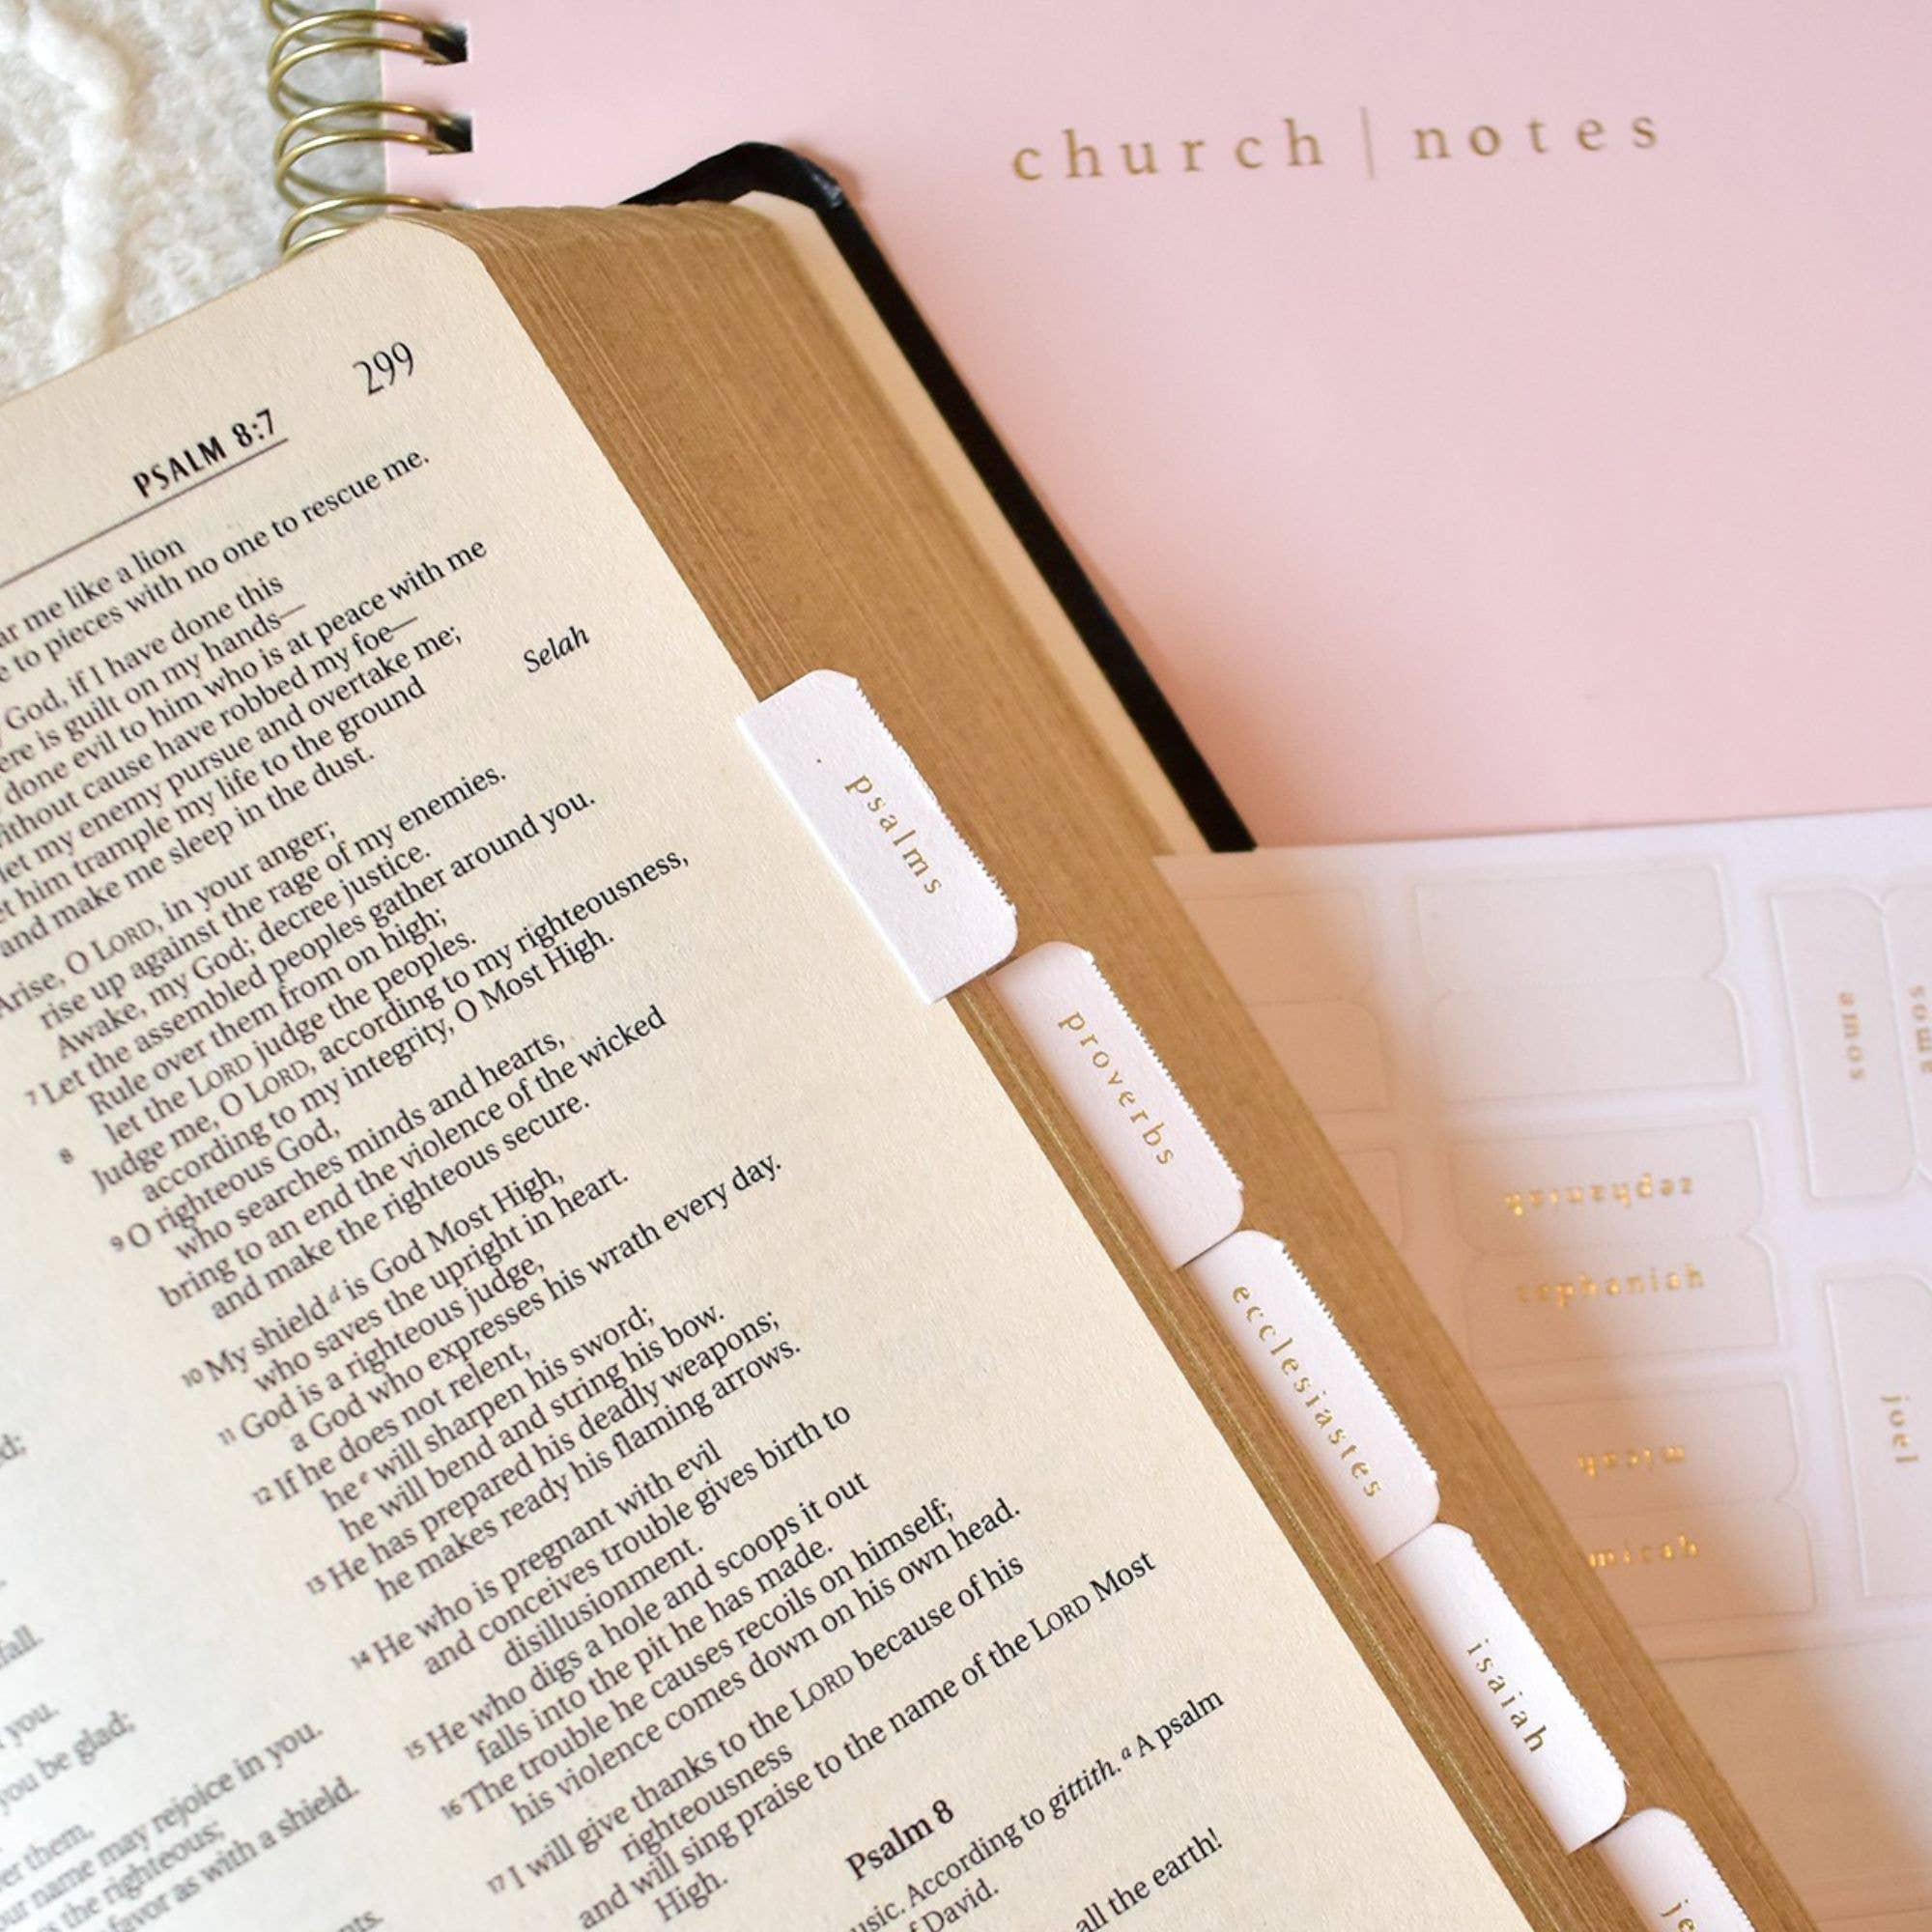 church | notes
299
PSALM 8:7
me like a lion
to pieces with no one to rescue me.
God, if I have done this
is guilt on my hands—
done evil to him who is at peace with me
without cause have robbed my foe—
let my enemy pursue and overtake me;
him trample my life to the ground
and make me sleep in the dust.
Selah
Arise, O LORD, in your anger;
rise up against the rage of my enemies.
Awake, my God; decree justice.
7 Let the assembled peoples gather around you.
Rule over them from on high;
8 let the LORD judge the peoples.
Judge me, O LORD, according to my righteousness,
according to my integrity, O Most High.
9 O righteous God,
who searches minds and hearts,
bring to an end the violence of the wicked
and make the righteous secure.
10 My shield d is God Most High,
who saves the upright in heart.
11 God is a righteous judge,
a God who expresses his wrath every day.
12 If he does not relent,
he e will sharpen his sword;
he will bend and string his bow.
13 He has prepared his deadly weapons;
he makes ready his flaming arrows.
14 He who is pregnant with evil
and conceives trouble gives birth to
disillusionment.
15 He who digs a hole and scoops it out
falls into the pit he has made.
16 The trouble he causes recoils on himself;
his violence comes down on his own head.
17 I will give thanks to the LORD because of his
righteousness
and will sing praise to the name of the LORD Most
High.
Psalm 8
According to gittith. a A psalm
David.
all the earth!
fall.
you.
you be glad;
them,
name may rejoice in you.
the righteous;
favor as with a shield.
psalms
proverbs
ecclesiastes
isaiah
je
amos
some
zephaniah
zephaniah
joel
micah
micah